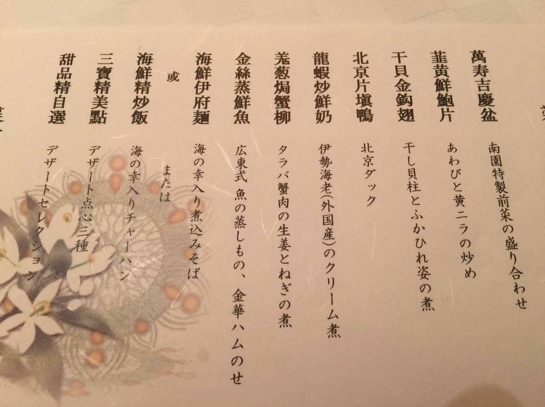 萬寿吉慶盆
南園特製前菜の盛り合わせ
韮黄鮮鮑片
あわびと黄ニラの炒め
干貝金鈎翅
干し貝柱とふかひれ姿の煮
北京片塡鴨
北京ダック
龍蝦炒鮮奶
伊勢海老(外国産)のクリーム煮
羗葱焗蟹柳
タラバ蟹肉の生姜とねぎの煮
金絲蒸鮮魚
広東式 魚の蒸しもの、金華ハムのせ
海鮮伊府麺
海の幸入り煮込みそば
或
または
海鮮精炒飯
海の幸入りチャーハン
三寶精美點
デザート点心三種
甜品精自選
デザートセレクション